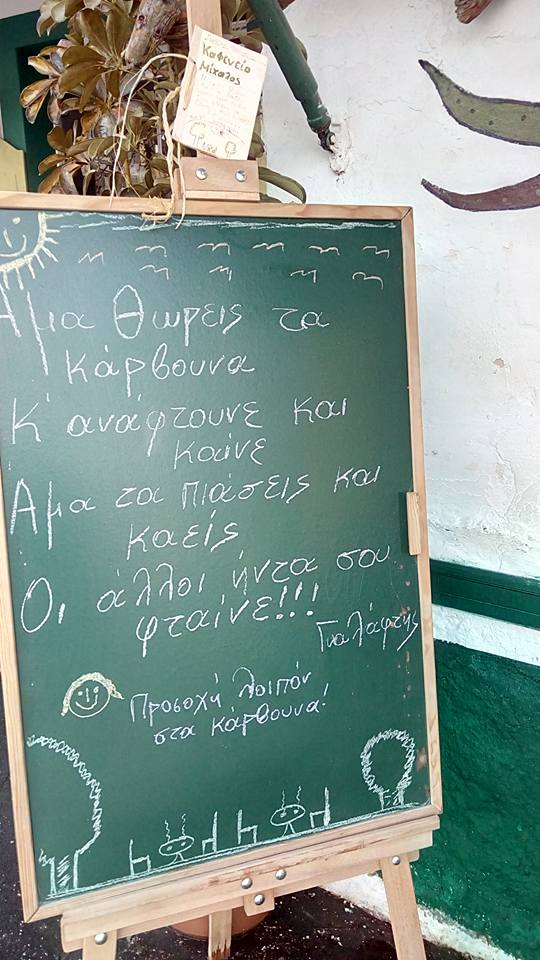 Καφενείο
Μίχαλος
Άμα θωρείς τα
κάρβουνα
Κ' ανάφτουνε και
καίνε
Άμα τα πιάσεις και
καείς
Οι άλλοι ήντα σου
φταίνε!!!
Γιαλάφτης
Προσοχή λοιπόν
στα κάρβουνα!